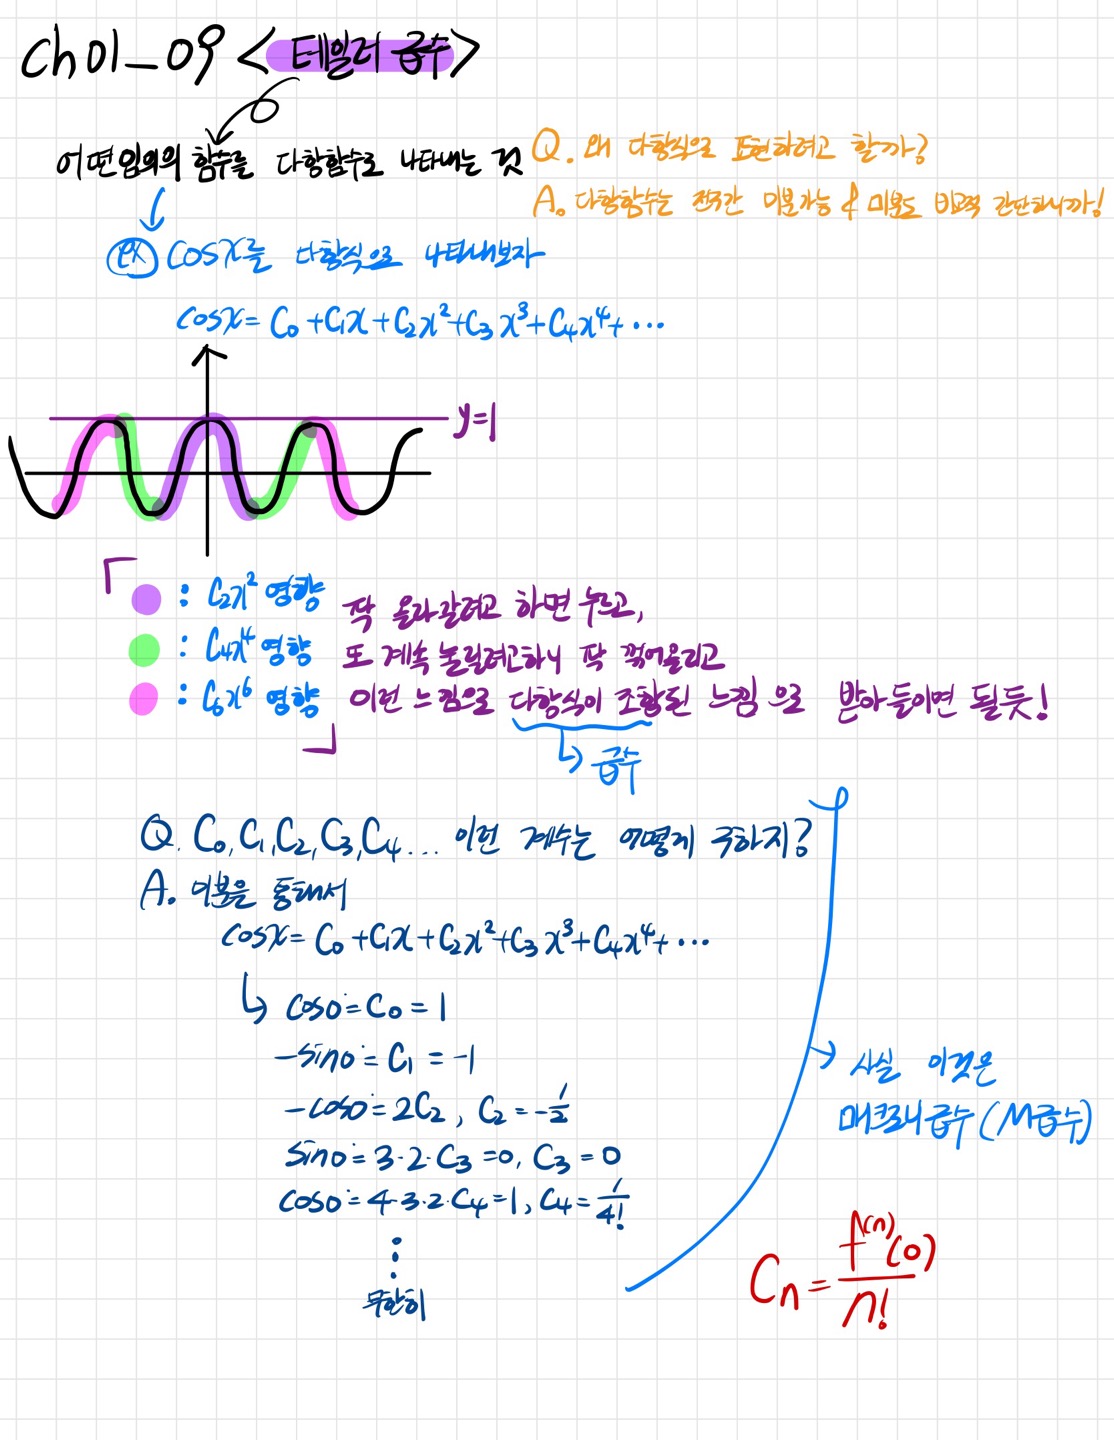 Ch01_09 <테일러 급수>
어떤 임의의 함수를 다항함수로 나타내는 것
Q. 왜 다항식으로 표현하려고 할까?
A. 다항함수는 전구간 미분가능 & 미분도 비교적 간단하니까!
ex) cosx를 다항식으로 나타내보자
cosx = C₀ + C₁x + C₂x² + C₃x³ + C₄x⁴ + ⋯
y=1
: C₂x² 영향
: C₄x⁴ 영향
: C₆x⁶ 영향
딱 올라갈려고 하면 누르고,
또 계속 눌릴려고하니 딱 꺾어올리고
이런 느낌으로 다항식이 조합된 느낌으로 받아들이면 될듯!
급수
Q. C₀, C₁, C₂, C₃, C₄... 이런 계수는 어떻게 구하지?
A. 미분을 통해서
cosx = C₀ + C₁x + C₂x² + C₃x³ + C₄x⁴ + ⋯
cos0 = C₀ = 1
-sin0 = C₁ = -1
-cos0 = 2C₂, C₂ = -1/2
sin0 = 3·2·C₃ = 0, C₃ = 0
cos0 = 4·3·2·C₄ = 1, C₄ = 1/4!
⋮
무한히
사실 이것은
매크로니급수 (M급수)
Cn = f⁽ⁿ⁾(0)/n!